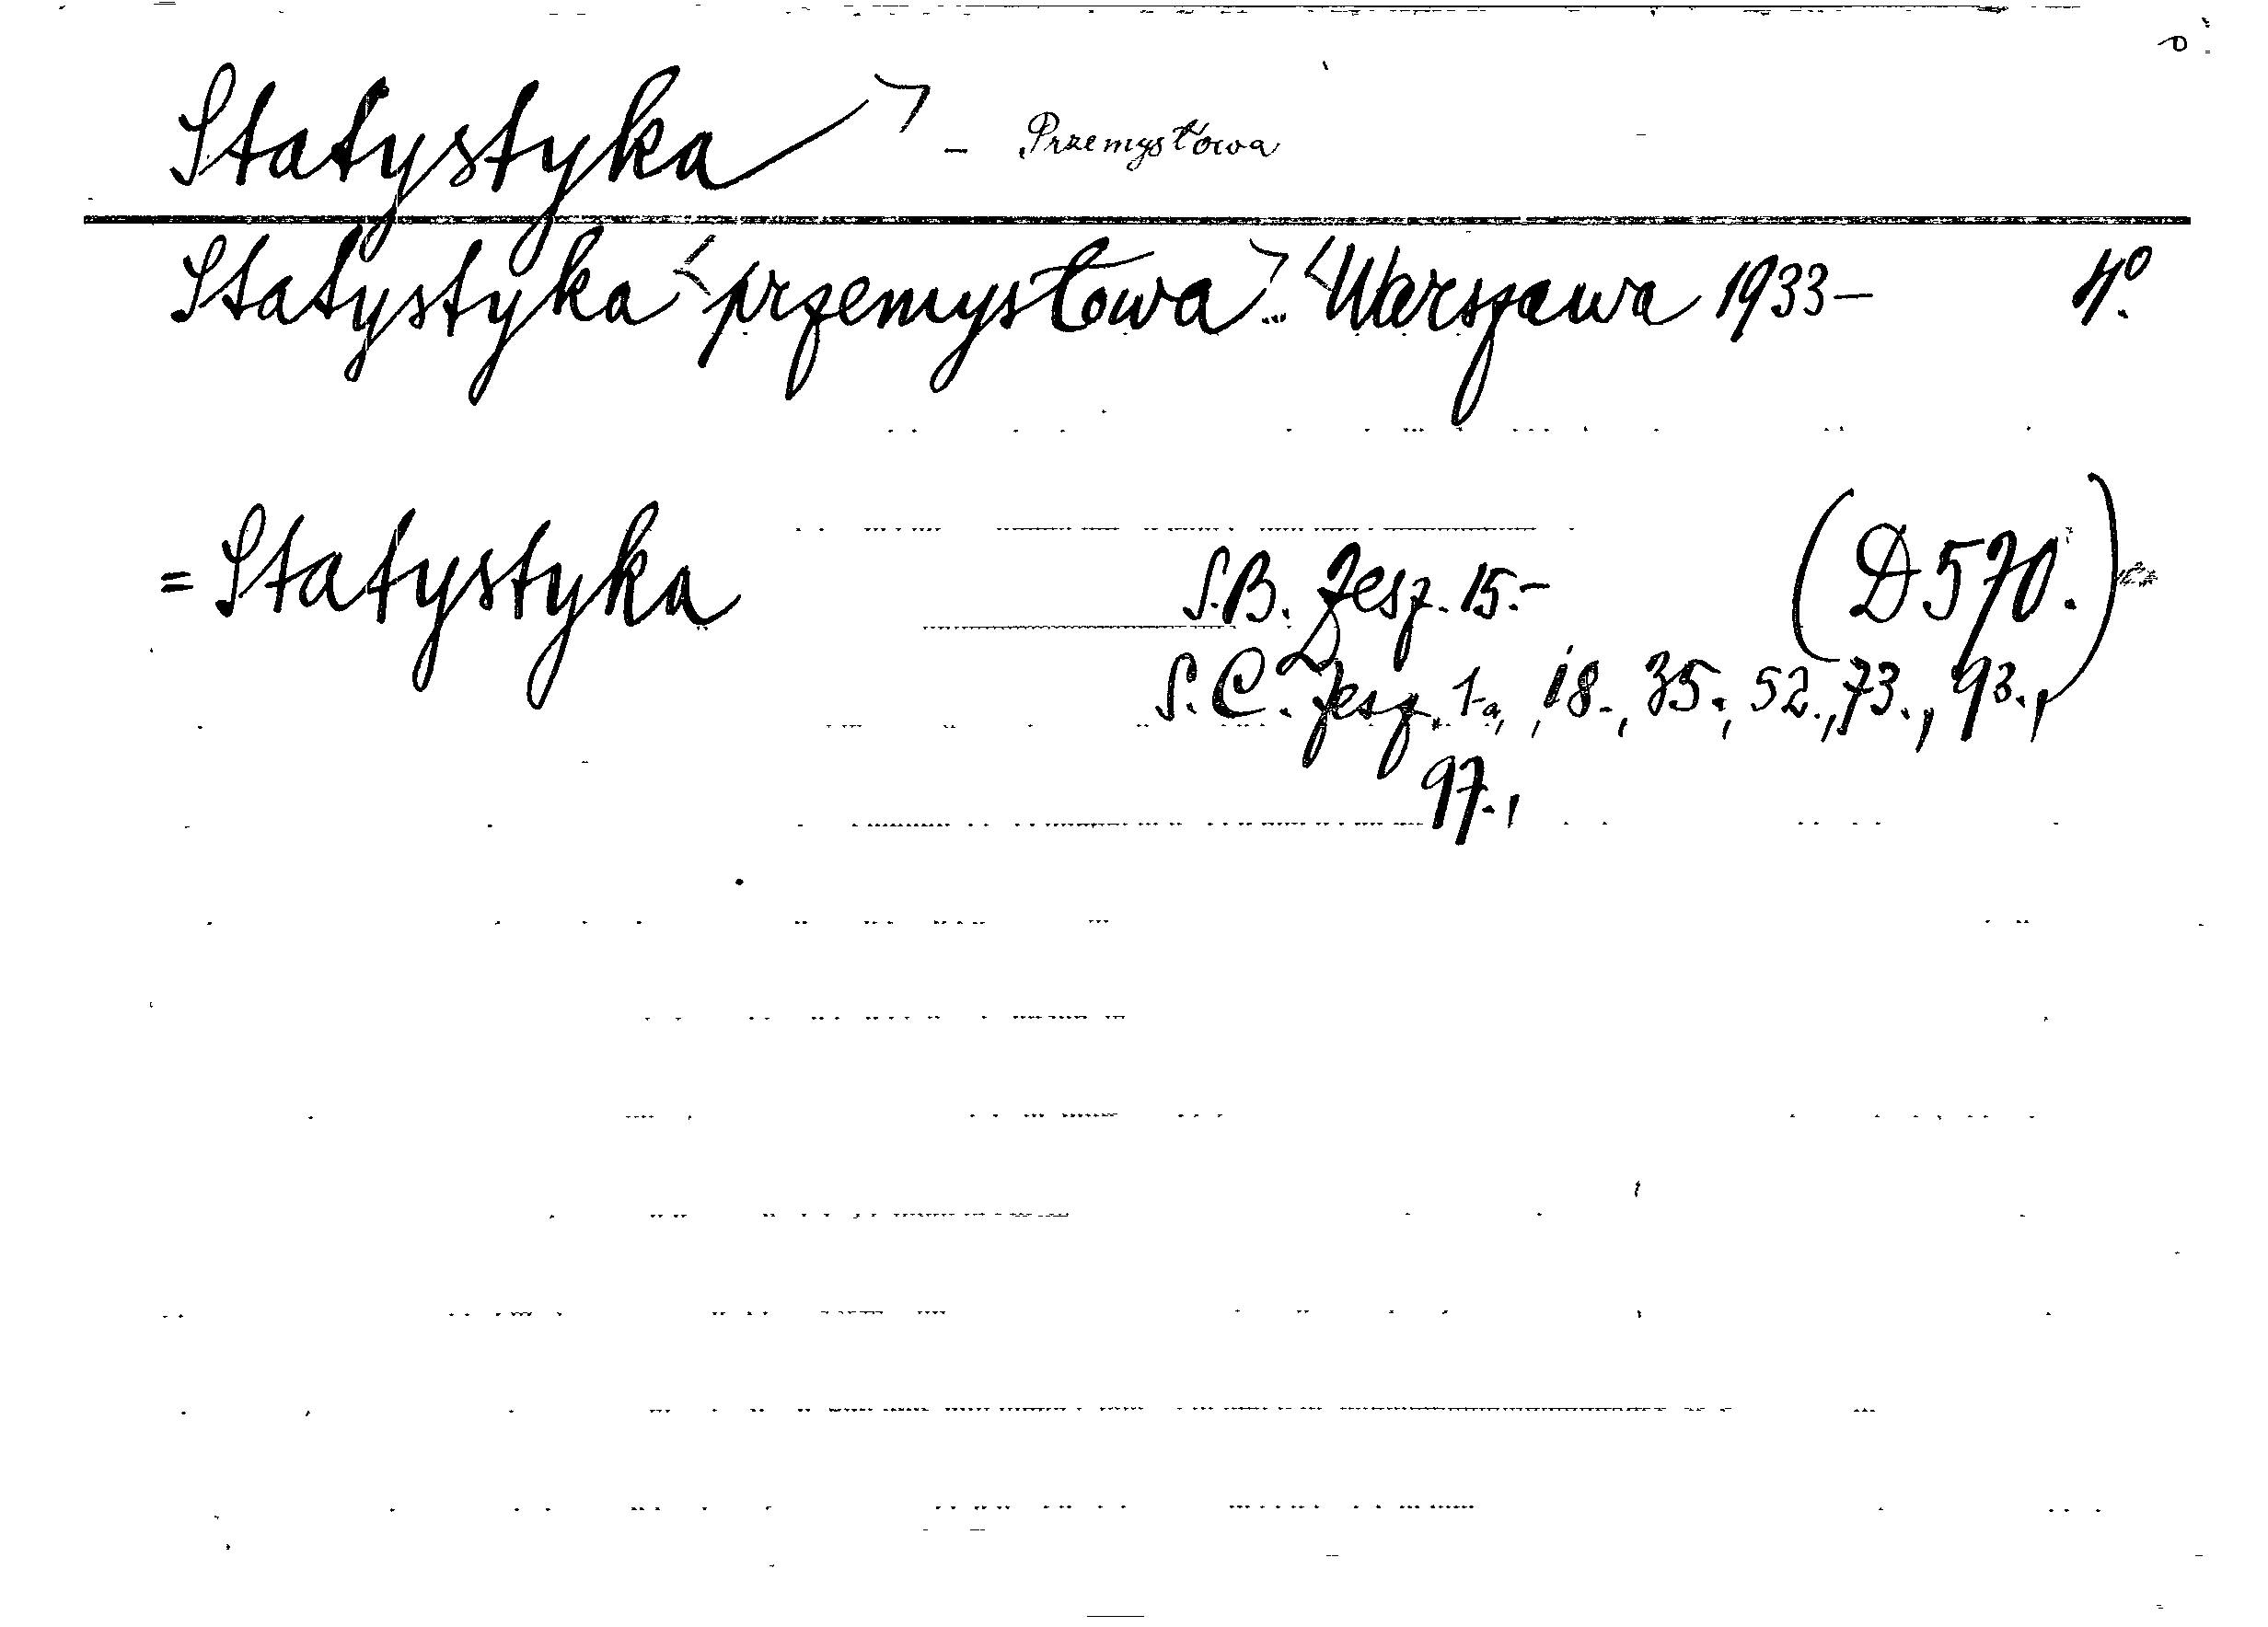 Statystyka > - Przemysłowa
Statystyka <przemysłowa> <Warszawa 1933- 4º.
= Statystyka S.B. Zesz. 15.- (D 570.)
S.C. Zesz. 1-a, 18., 35., 52., 73., 93.,
97.,